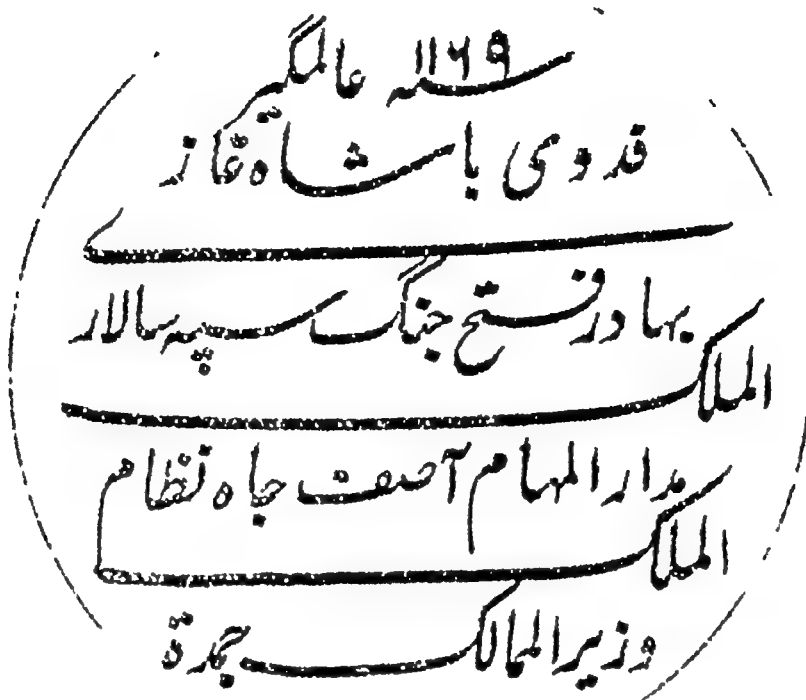 سنہ ۱۱۶۹ عالمگیر
فدوی باشاہ غاز
ے
بہادر فتح جنگ سپہ سالار
الملک
مدار المہام آصف جاہ نظام
الملک
وزیر الممالک جمدة